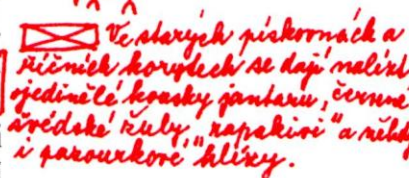 Ve starých pískovnách a
říčních korytech se dají nalézt
ojedinělé kousky jantaru, červené
švédské žuly „rapakivi" a někdy
i pazourkové hlízy.